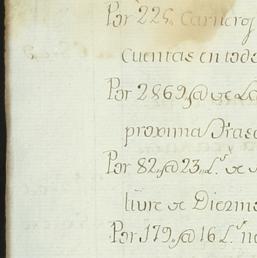 Por 225, Carneros
Cuentas en tod
Por 2869,@ de L
proxima Pras
Por 82,@ 23 L.s de
libre de Diezm
Por 179,@ 16 L.s n